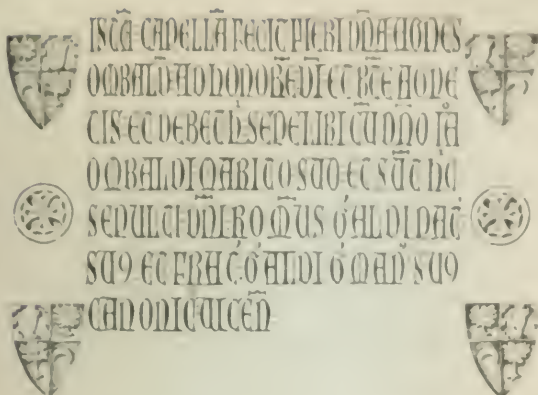 ISTĀ CAPELLĀ FECIT FIERI DN̄A AGNES
OMBALD̄ AD HONORĒ DĪ ET BT̄E AGNE
TIS ET DEBET H̄ SEPELIRI CŪ DN̄O IĀ
OMBALDI MARITO SUO ET SŪT HC
SEPULTI DN̄I ROM̄US O̓ALDI PAT̄
SU9 ET FRAC̓ O̓ALDI O̓ MAN̄ SU9
CANONIC̓ VICEN̄